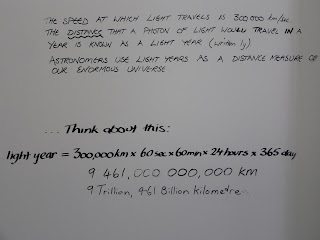 THE SPEED AT WHICH LIGHT TRAVELS IS 300,000 km/sec
THE DISTANCE THAT A PHOTON OF LIGHT WOULD TRAVEL IN A
YEAR IS KNOWN AS A LIGHT YEAR (written ly)
ASTRONOMERS USE LIGHT YEARS AS A DISTANCE MEASURE OF
OUR ENORMOUS UNIVERSE
... Think about this:
light year = 300,000km x 60 sec x 60min x 24 hours x 365 day
9 461,000 000,000 KM
9 Trillion, 461 Billion Kilometre